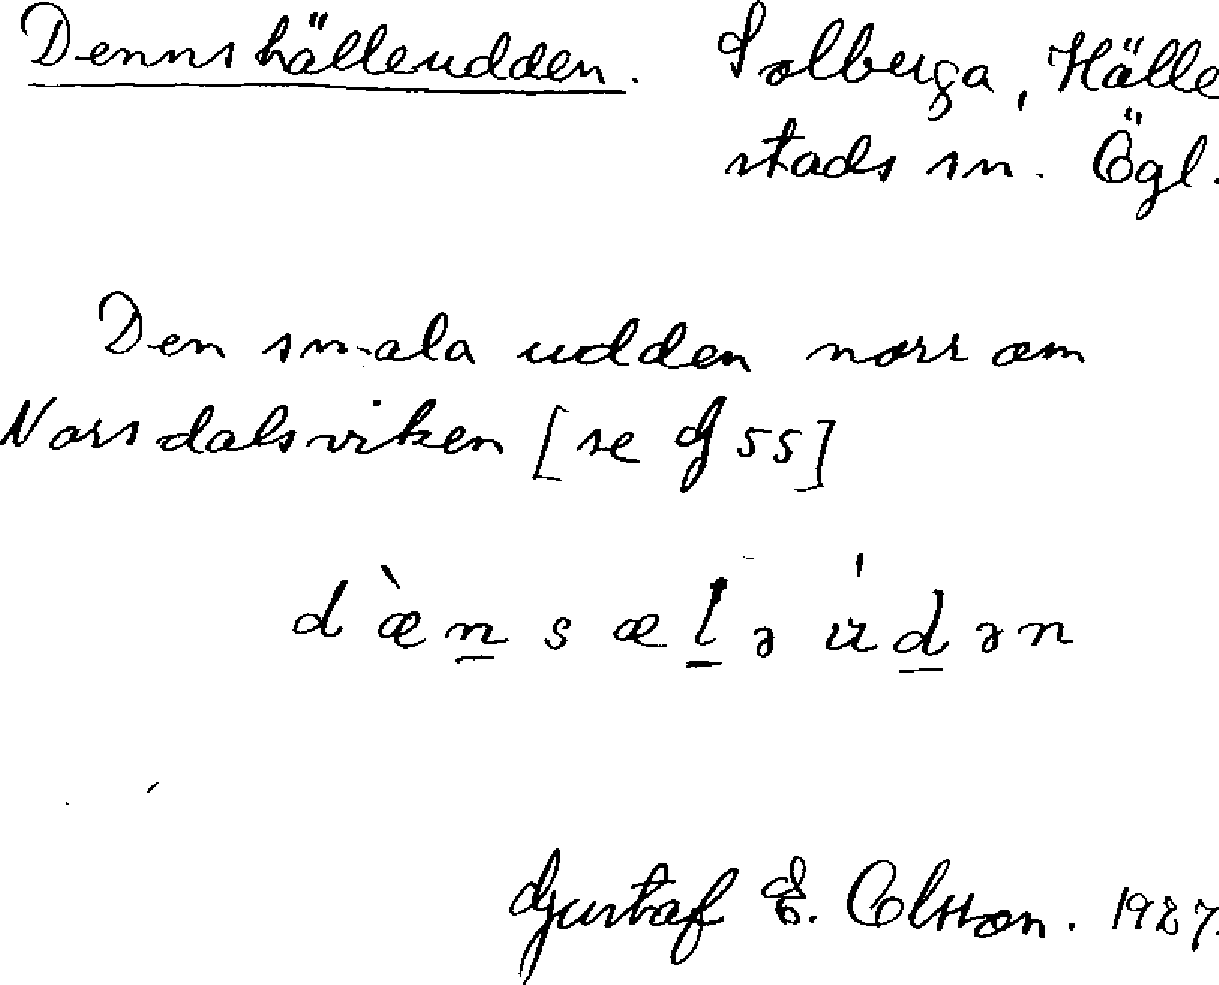 Dennshälleudden. Solberga, Hälle
stads sn. Ögl.
Den smala udden norr om
Norsdalsviken [se G 55]
d æ̀ n̲ s æ l̲ ə ú d̲ ə n
Gustaf E. Olsson. 1927.